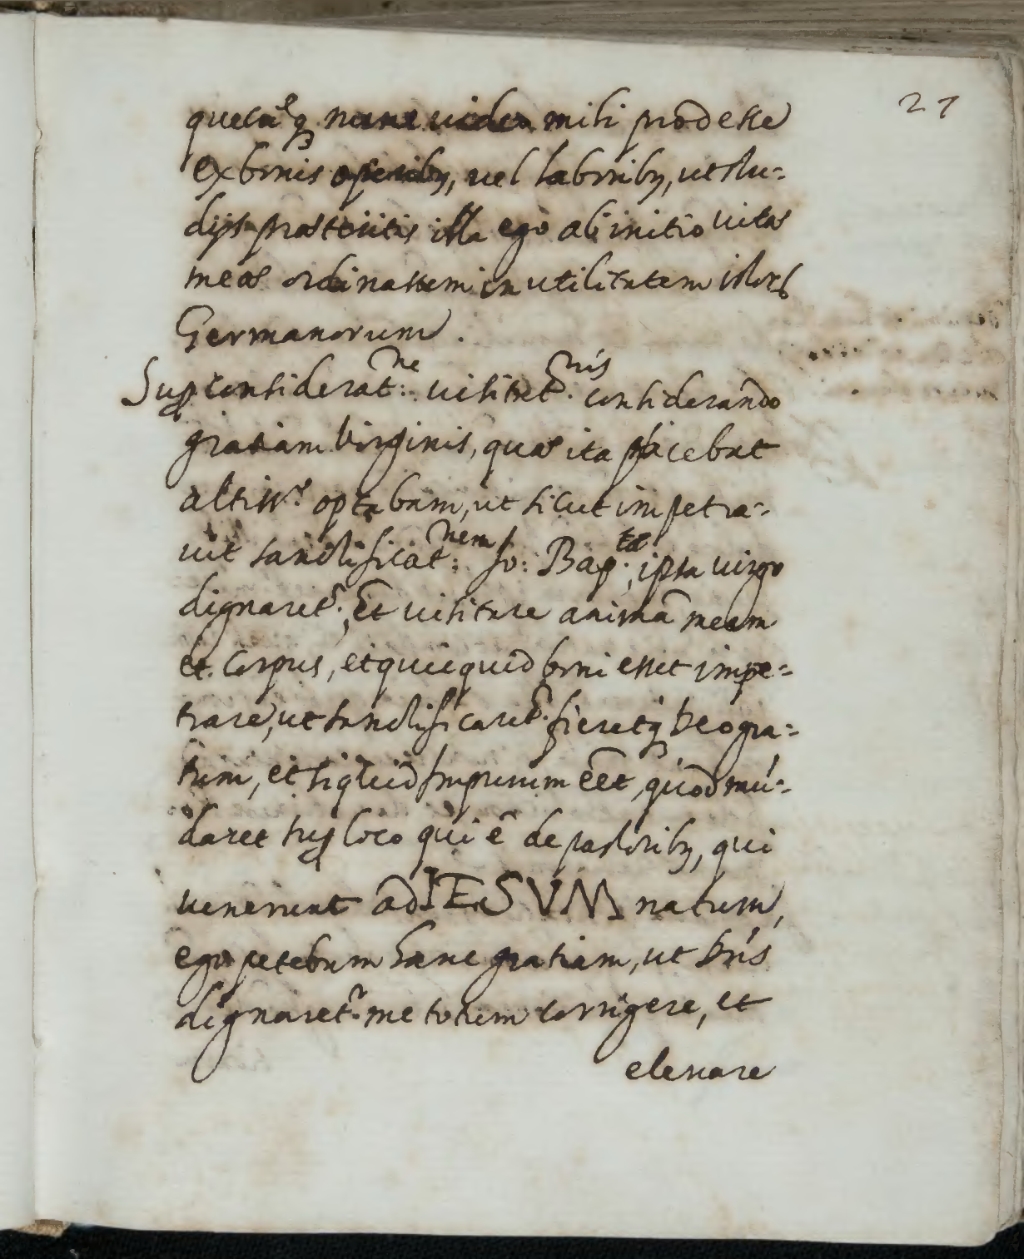 27
quecūq nunc uideo mihi prodesse
ex bonis operibꝫ, uel laboribꝫ, ut stu-
dijs praeteritis illa ego ab initio uitae
meae ordinassem in utilitatem istorꝫ
Germanorum.
Sup considerat:ne uisitat.nis considerando
gratiam Virginis, quae ita placebat
altiss.o optabam, ut sicut impetra-
uit sanctificat:nem Jo: Bap.tae, ipsa uirgo
dignaret.r, et uisitare animā meam
et corpus, et quicquid boni esset impe-
trare, ut sanctificaret.r fieretqꝫ Deo gra-
tum, et siquid impurum eēt, quod mū-
daret sup loco qui ē de pastoribꝫ, qui
uenerunt ad IESVM natum,
ego petebam hanc gratiam, ut Dn̄s
dignaret.r me totum corrigere, et
eleuare